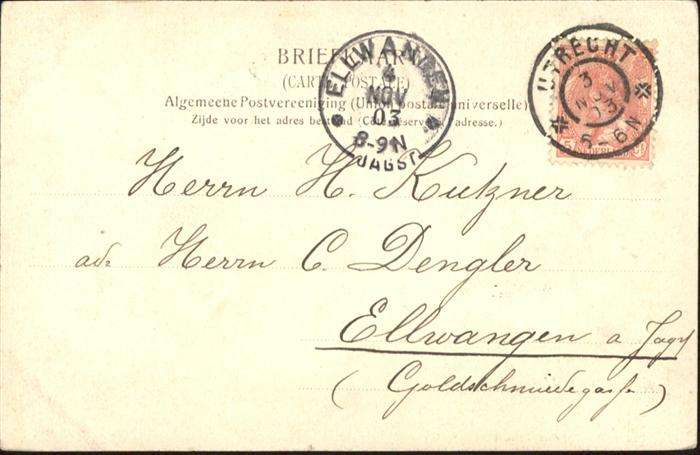 BRIEFKAART
(CARTE POSTALE)
Algemeene Postvereeniging (Union postale universelle)
Zijde voor het adres bestemd (Côté réservé à l'adresse.)
ELLWANGEN
4
NOV
03
8-9 N
JAGST
UTRECHT
3
NOV
03
5-6 N
NEDERLAND
Herrn H. Kutzner
ad. Herrn C. Dengler
Ellwangen a Jagst
(Goldschmiedegasse)